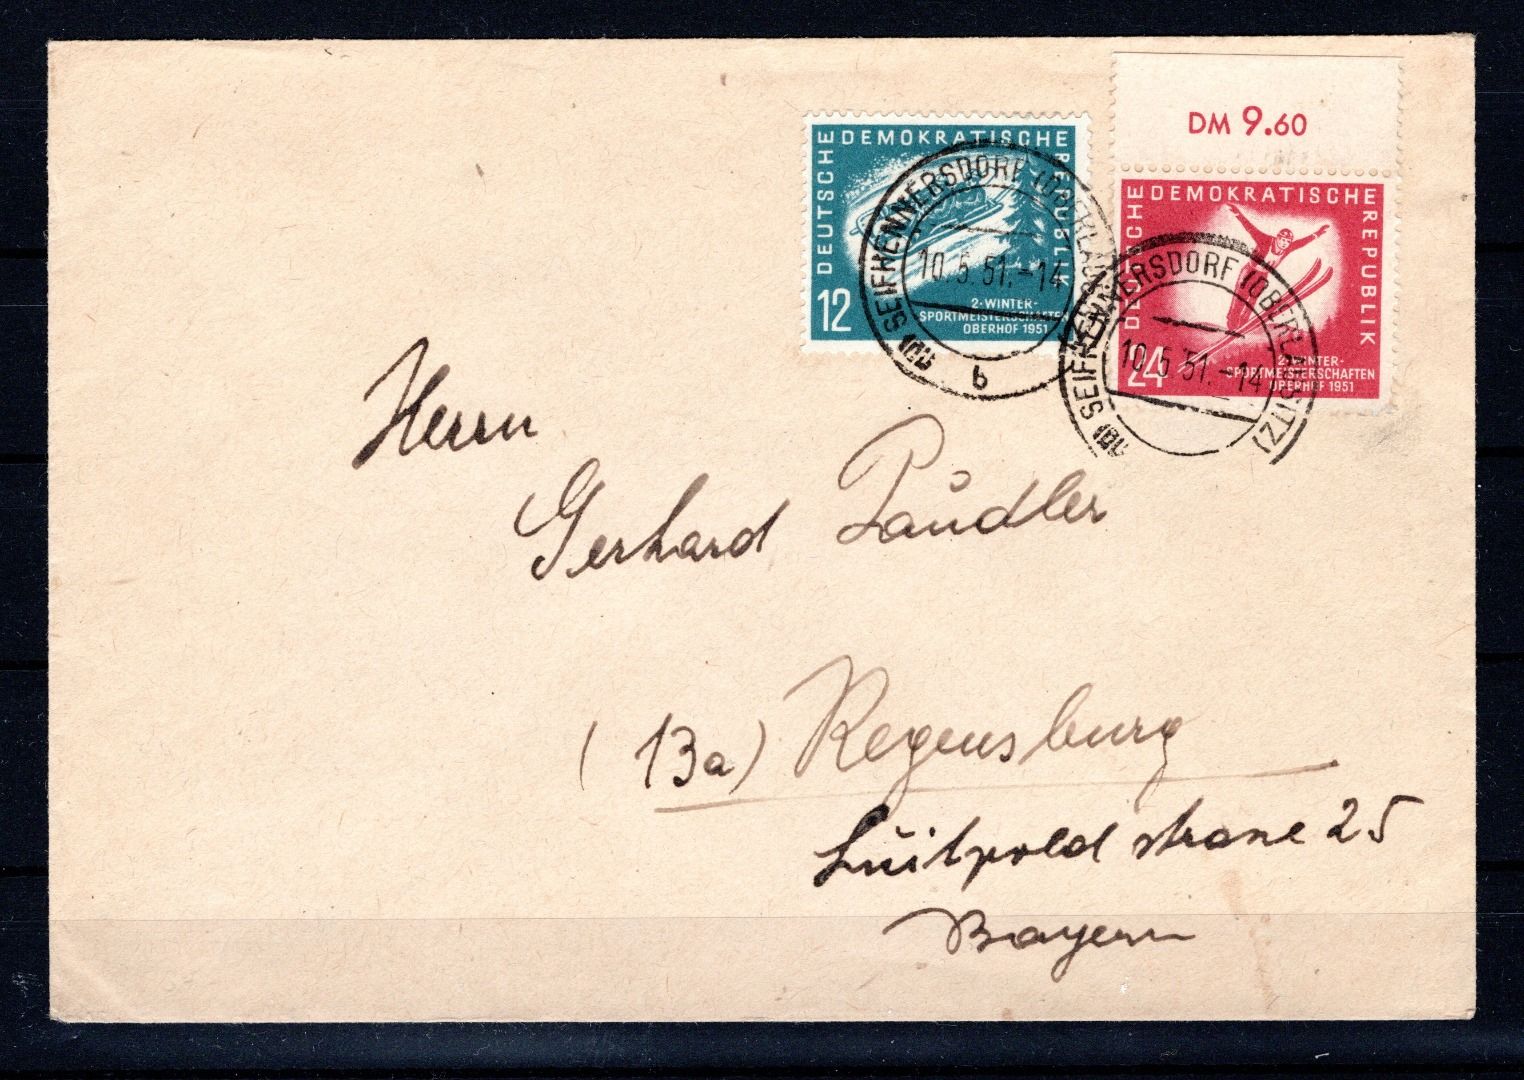 DM 9.60
DEUTSCHE DEMOKRATISCHE REPUBLIK
12
2. WINTER-
SPORTMEISTERSCHAFTEN
OBERHOF 1951
DEUTSCHE DEMOKRATISCHE REPUBLIK
24
2. WINTER-
SPORTMEISTERSCHAFTEN
OBERHOF 1951
SEIFHENNERSDORF (OBERLAUSITZ)
10.5.51.-14
b
SEIFHENNERSDORF (OBERLAUSITZ)
10.5.51.-14
Herrn
Gerhard
(13a) Regensburg
Luitpoldstrasse 25
Bayern